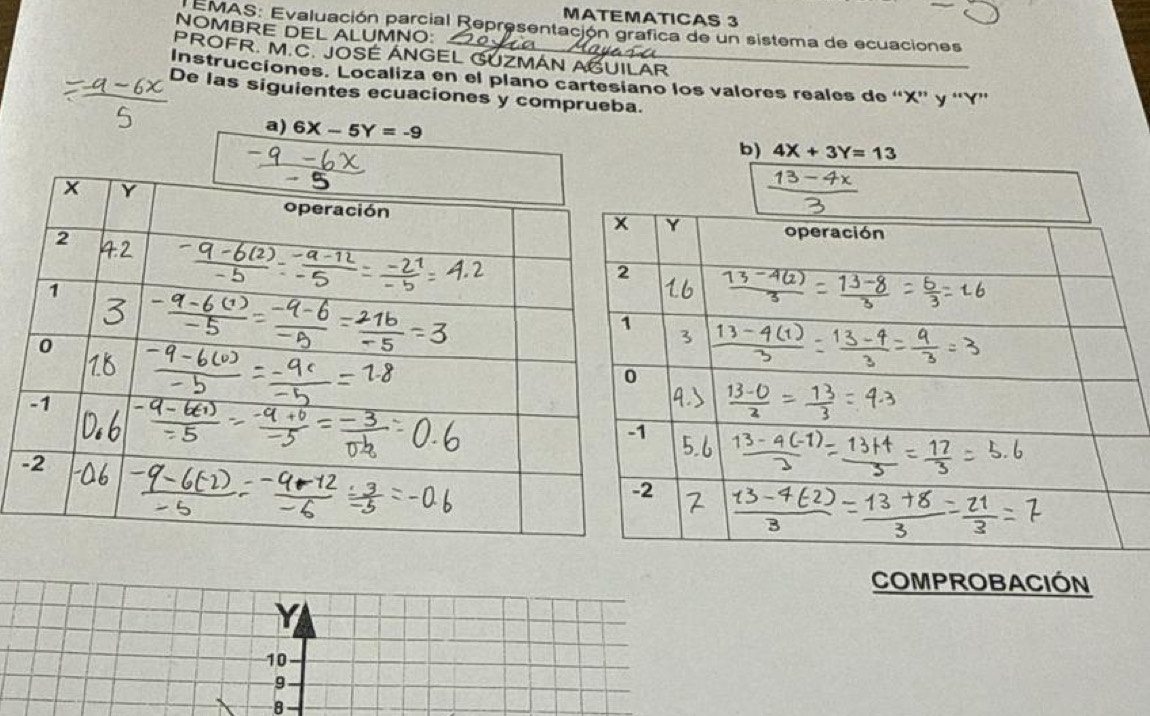 TEMAS: Evaluación parcial Representación grafica de un sistema de ecuaciones
MATEMATICAS 3
NOMBRE DEL ALUMNO: Sofia
PROFR. M.C. JOSÉ ÁNGEL GUZMÁN AGUILAR
Instrucciones. Localiza en el plano cartesiano los valores reales de “X” y “Y”
De las siguientes ecuaciones y comprueba.
= -9-6x / 5
a) 6X – 5Y = -9
-9-6x / -5
X Y operación
2 4.2 -9-6(2) / -5 = -9-12 / -5 = -21 / -5 = 4.2
1 3 -9-6(1) / -5 = -9-6 / -5 = 216 / -5 = 3
0 1.8 -9-6(0) / -5 = -9 / -5 = 1.8
-1 0.6 -9-6(-1) / -5 = -9+6 / -5 = -3 / = 0.6
-2 -0.6 -9-6(-2) / -5 = -9+12 / -6 = 3 / -5 = -0.6
b) 4X + 3Y= 13
13-4x / 3
X Y operación
2 1.6 13-4(2) / 3 = 13-8 / 3 = 5 / 3 = 1.6
1 3 13-4(1) / 3 = 13-4 / 3 = 9 / 3 = 3
0 4.3 13-0 / 3 = 13 / 3 = 4.3
-1 5.6 13-4(-1) / 3 = 13+4 / 3 = 17 / 3 = 5.6
-2 7 13-4(-2) / 3 = 13+8 / 3 = 21 / 3 = 7
COMPROBACIÓN
Y
10
9
8